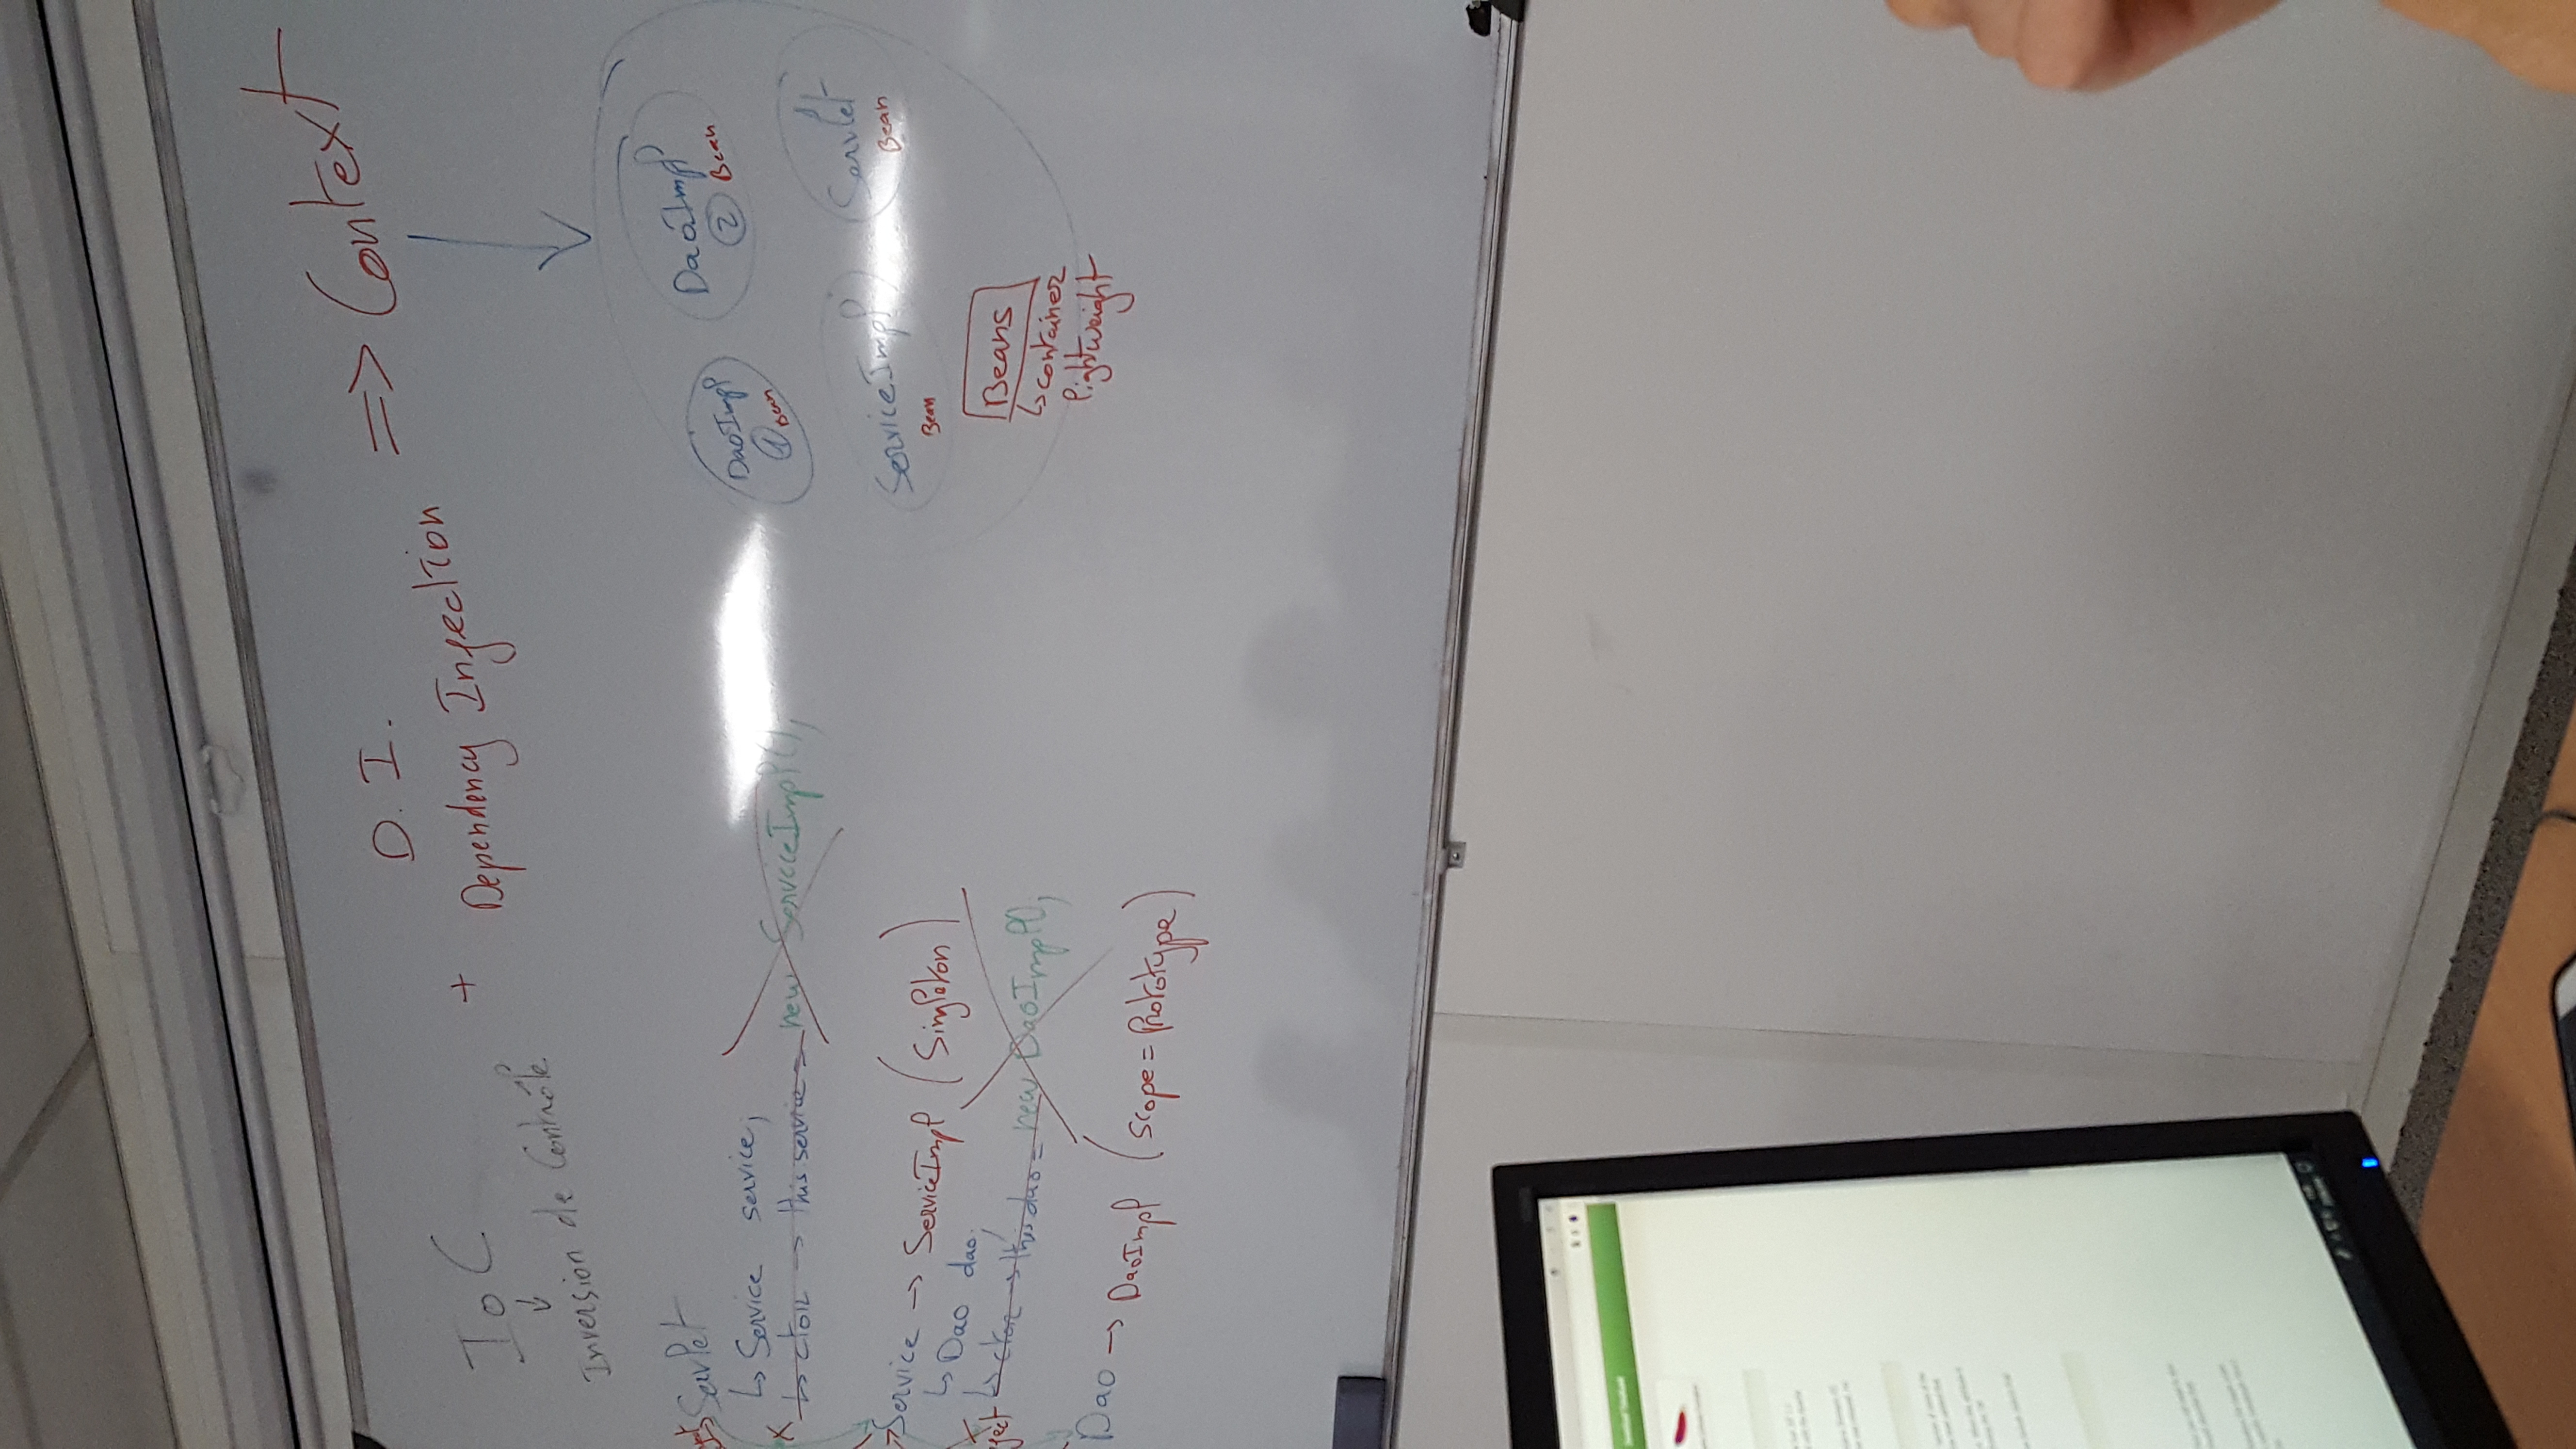 IoC + D.I. => Context
Dependency Injection
↓
Inversion de Contrôle
Servlet
↳ Service service;
↳ ctor → this service = new ServiceImpl();
Service → ServiceImpl (Singleton)
↳ Dao dao;
↳ ctor → this dao = new DaoImpl();
Dao → DaoImpl (scope = Prototype)
DaoImpl
① Bean
DaoImpl
② Bean
ServiceImpl
Bean
Servlet
Bean
Beans
↳ container
lightweight